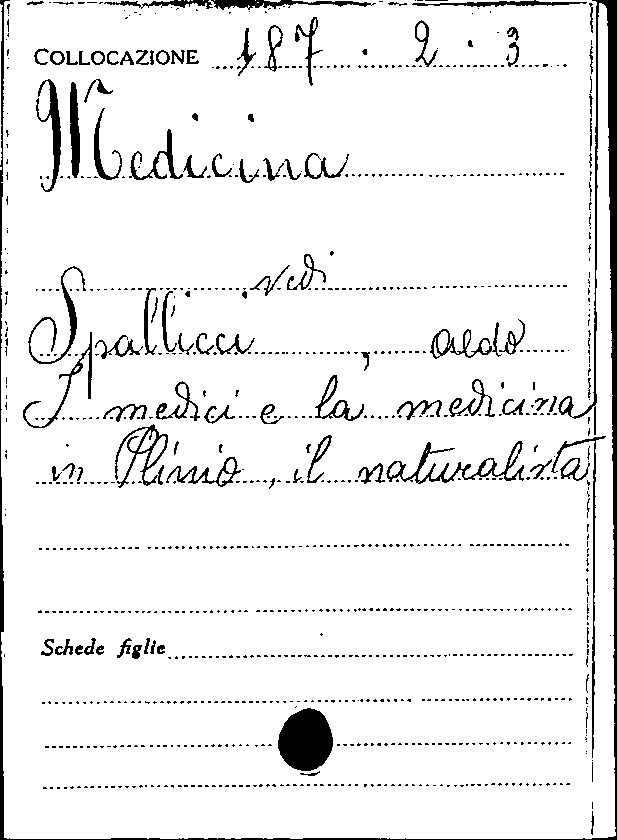 COLLOCAZIONE 187 · 2 · 3
Medicina
vedi
Spallicci, Aldo
I medici e la medicina
in Plinio, il naturalista
Schede figlie